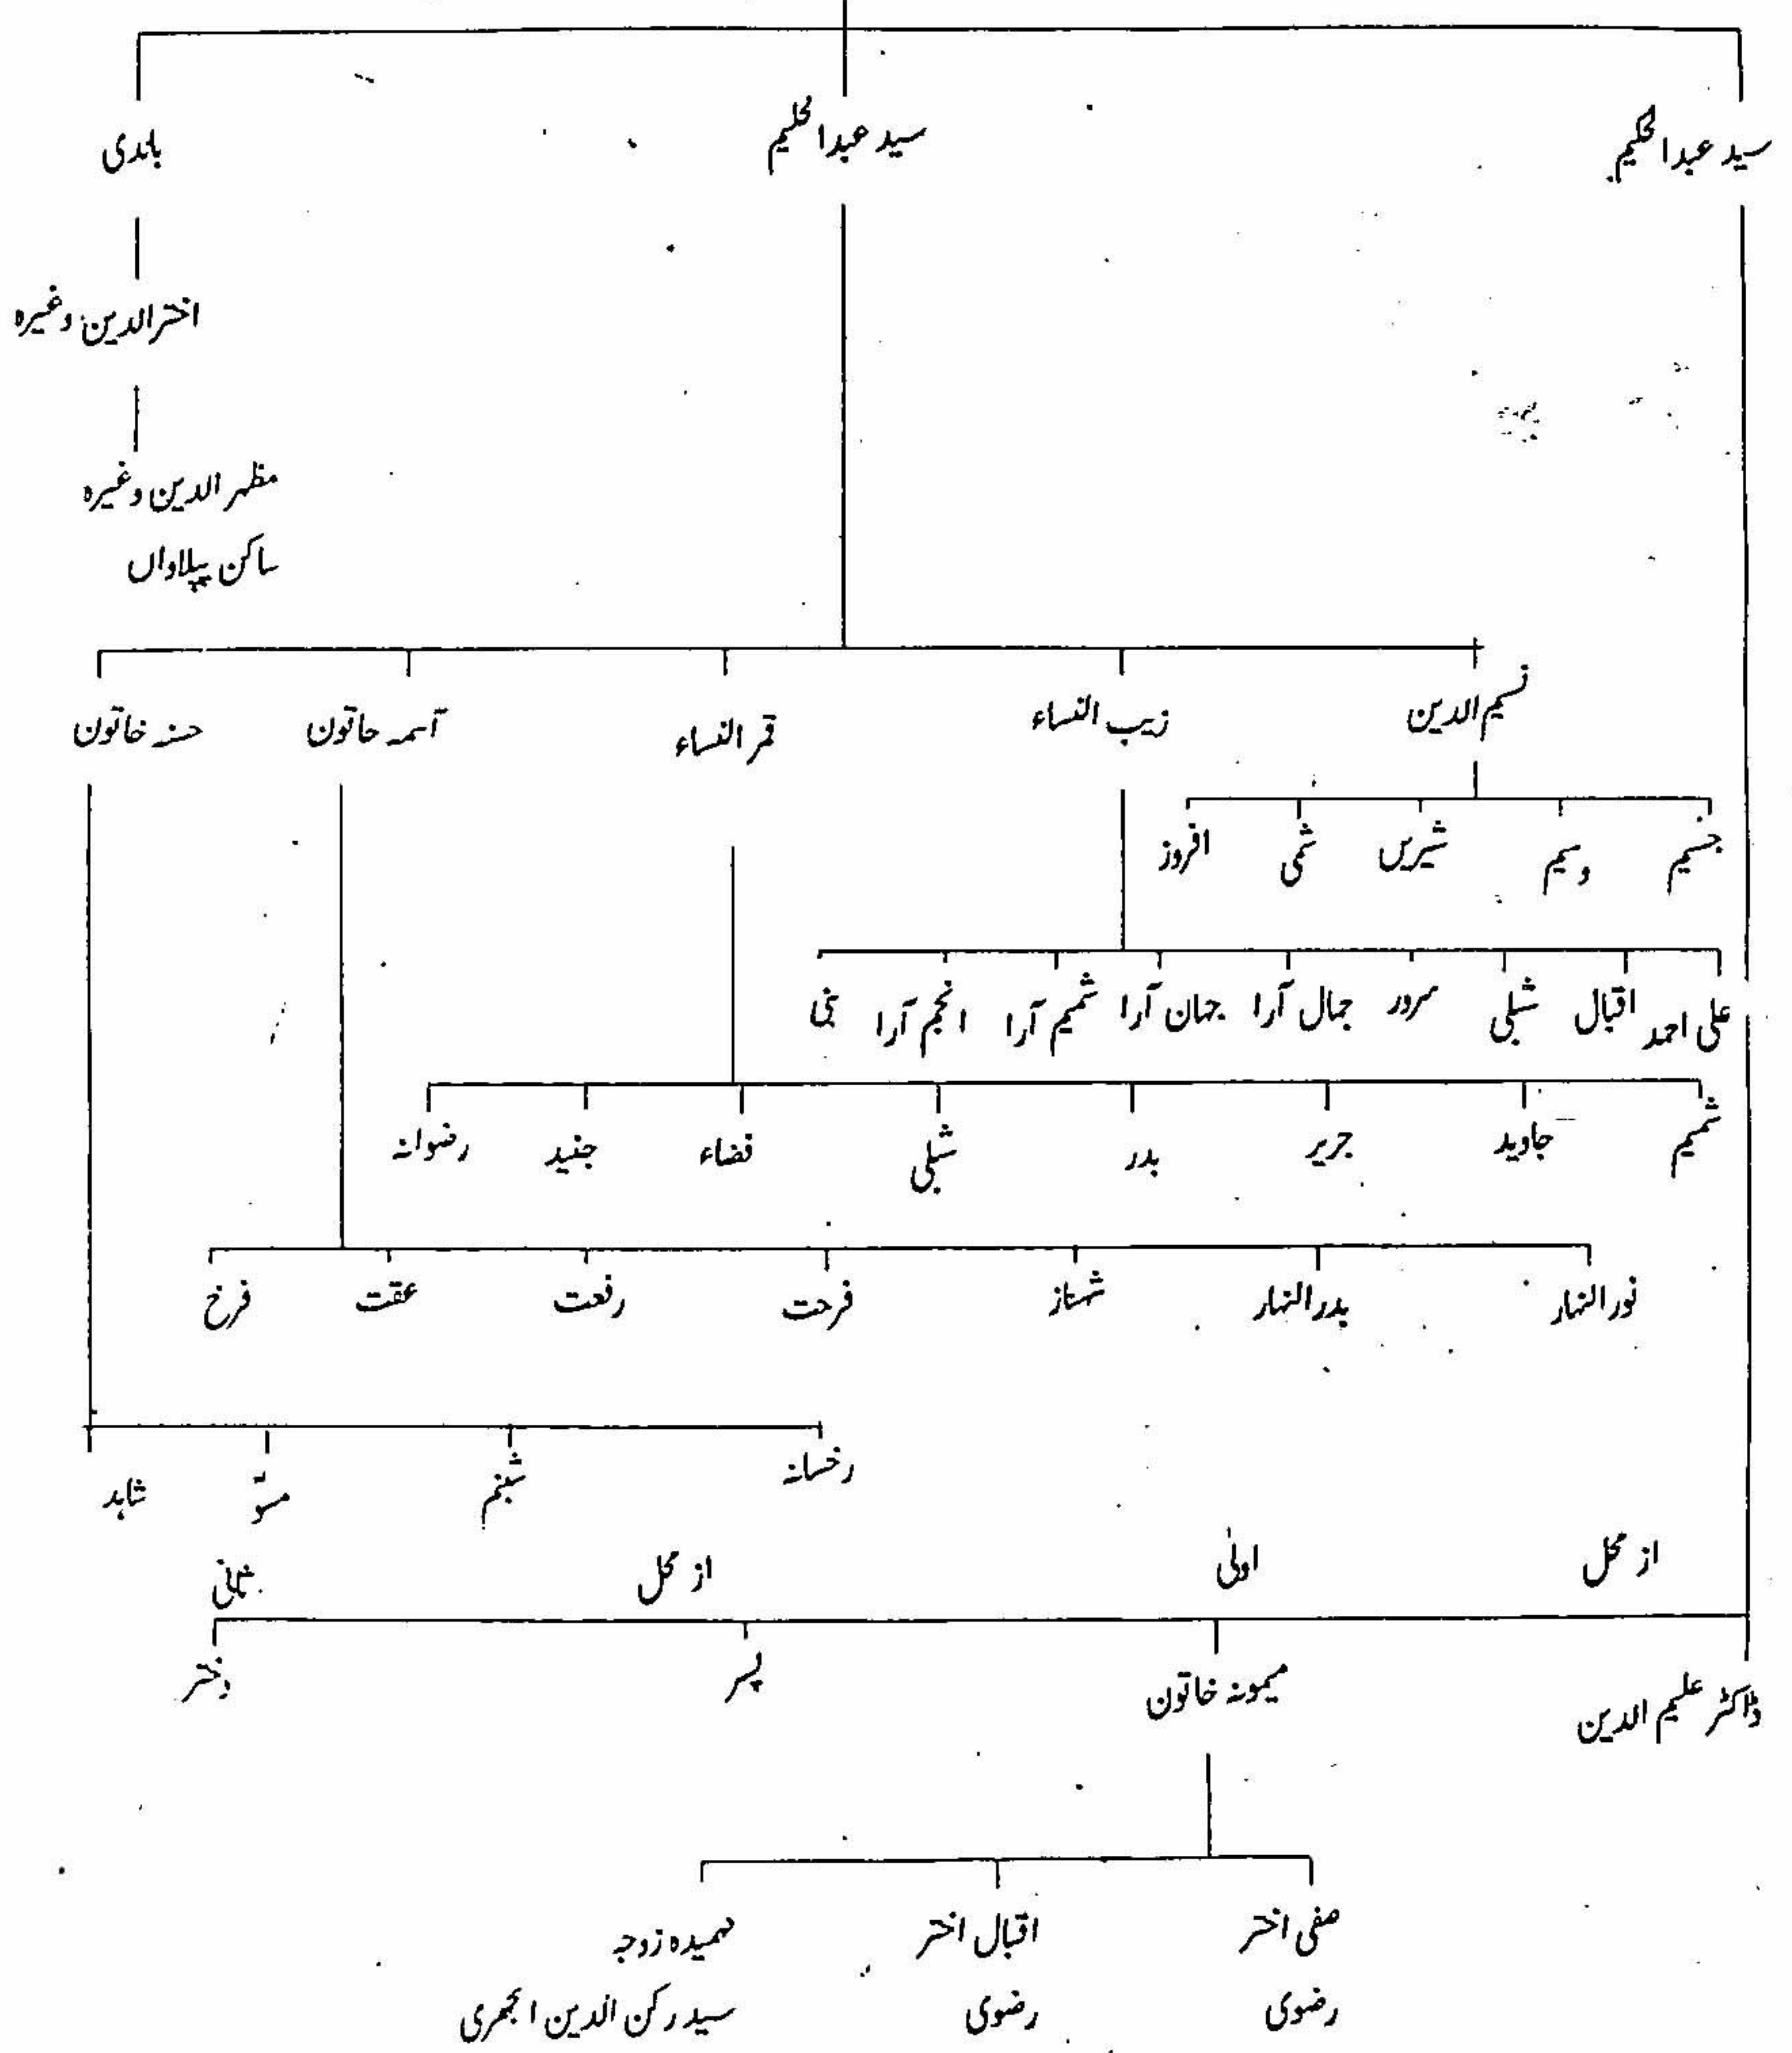 سید عبدالحکیم سید عبدالحلیم باندی
اخترالدین وغیرہ
مظہر الدین وغیرہ
ساکن پیپلاواں
نسیم الدین زیب النساء قمر النساء آسمہ خاتون حسنہ خاتون
جسیم وسیم شیریں شمی افروز
علی احمد اقبال شبلی سرور جمال آرا جہان آرا شمیم آرا انجم آرا
شمیم جاوید جریر بدر شبلی فضاء جنید رضوانہ
نورالنہار بدرالنہار شہناز فرحت رفعت عفت فرخ
رخسانہ شبنم شاہد
از محل اولیٰ از محل ثانی
ڈاکٹر علیم الدین میمونہ خاتون پسر دختر
صفی اختر اقبال اختر فہمیدہ زوجہ
رضوی رضوی سید رکن الدین اجمیری